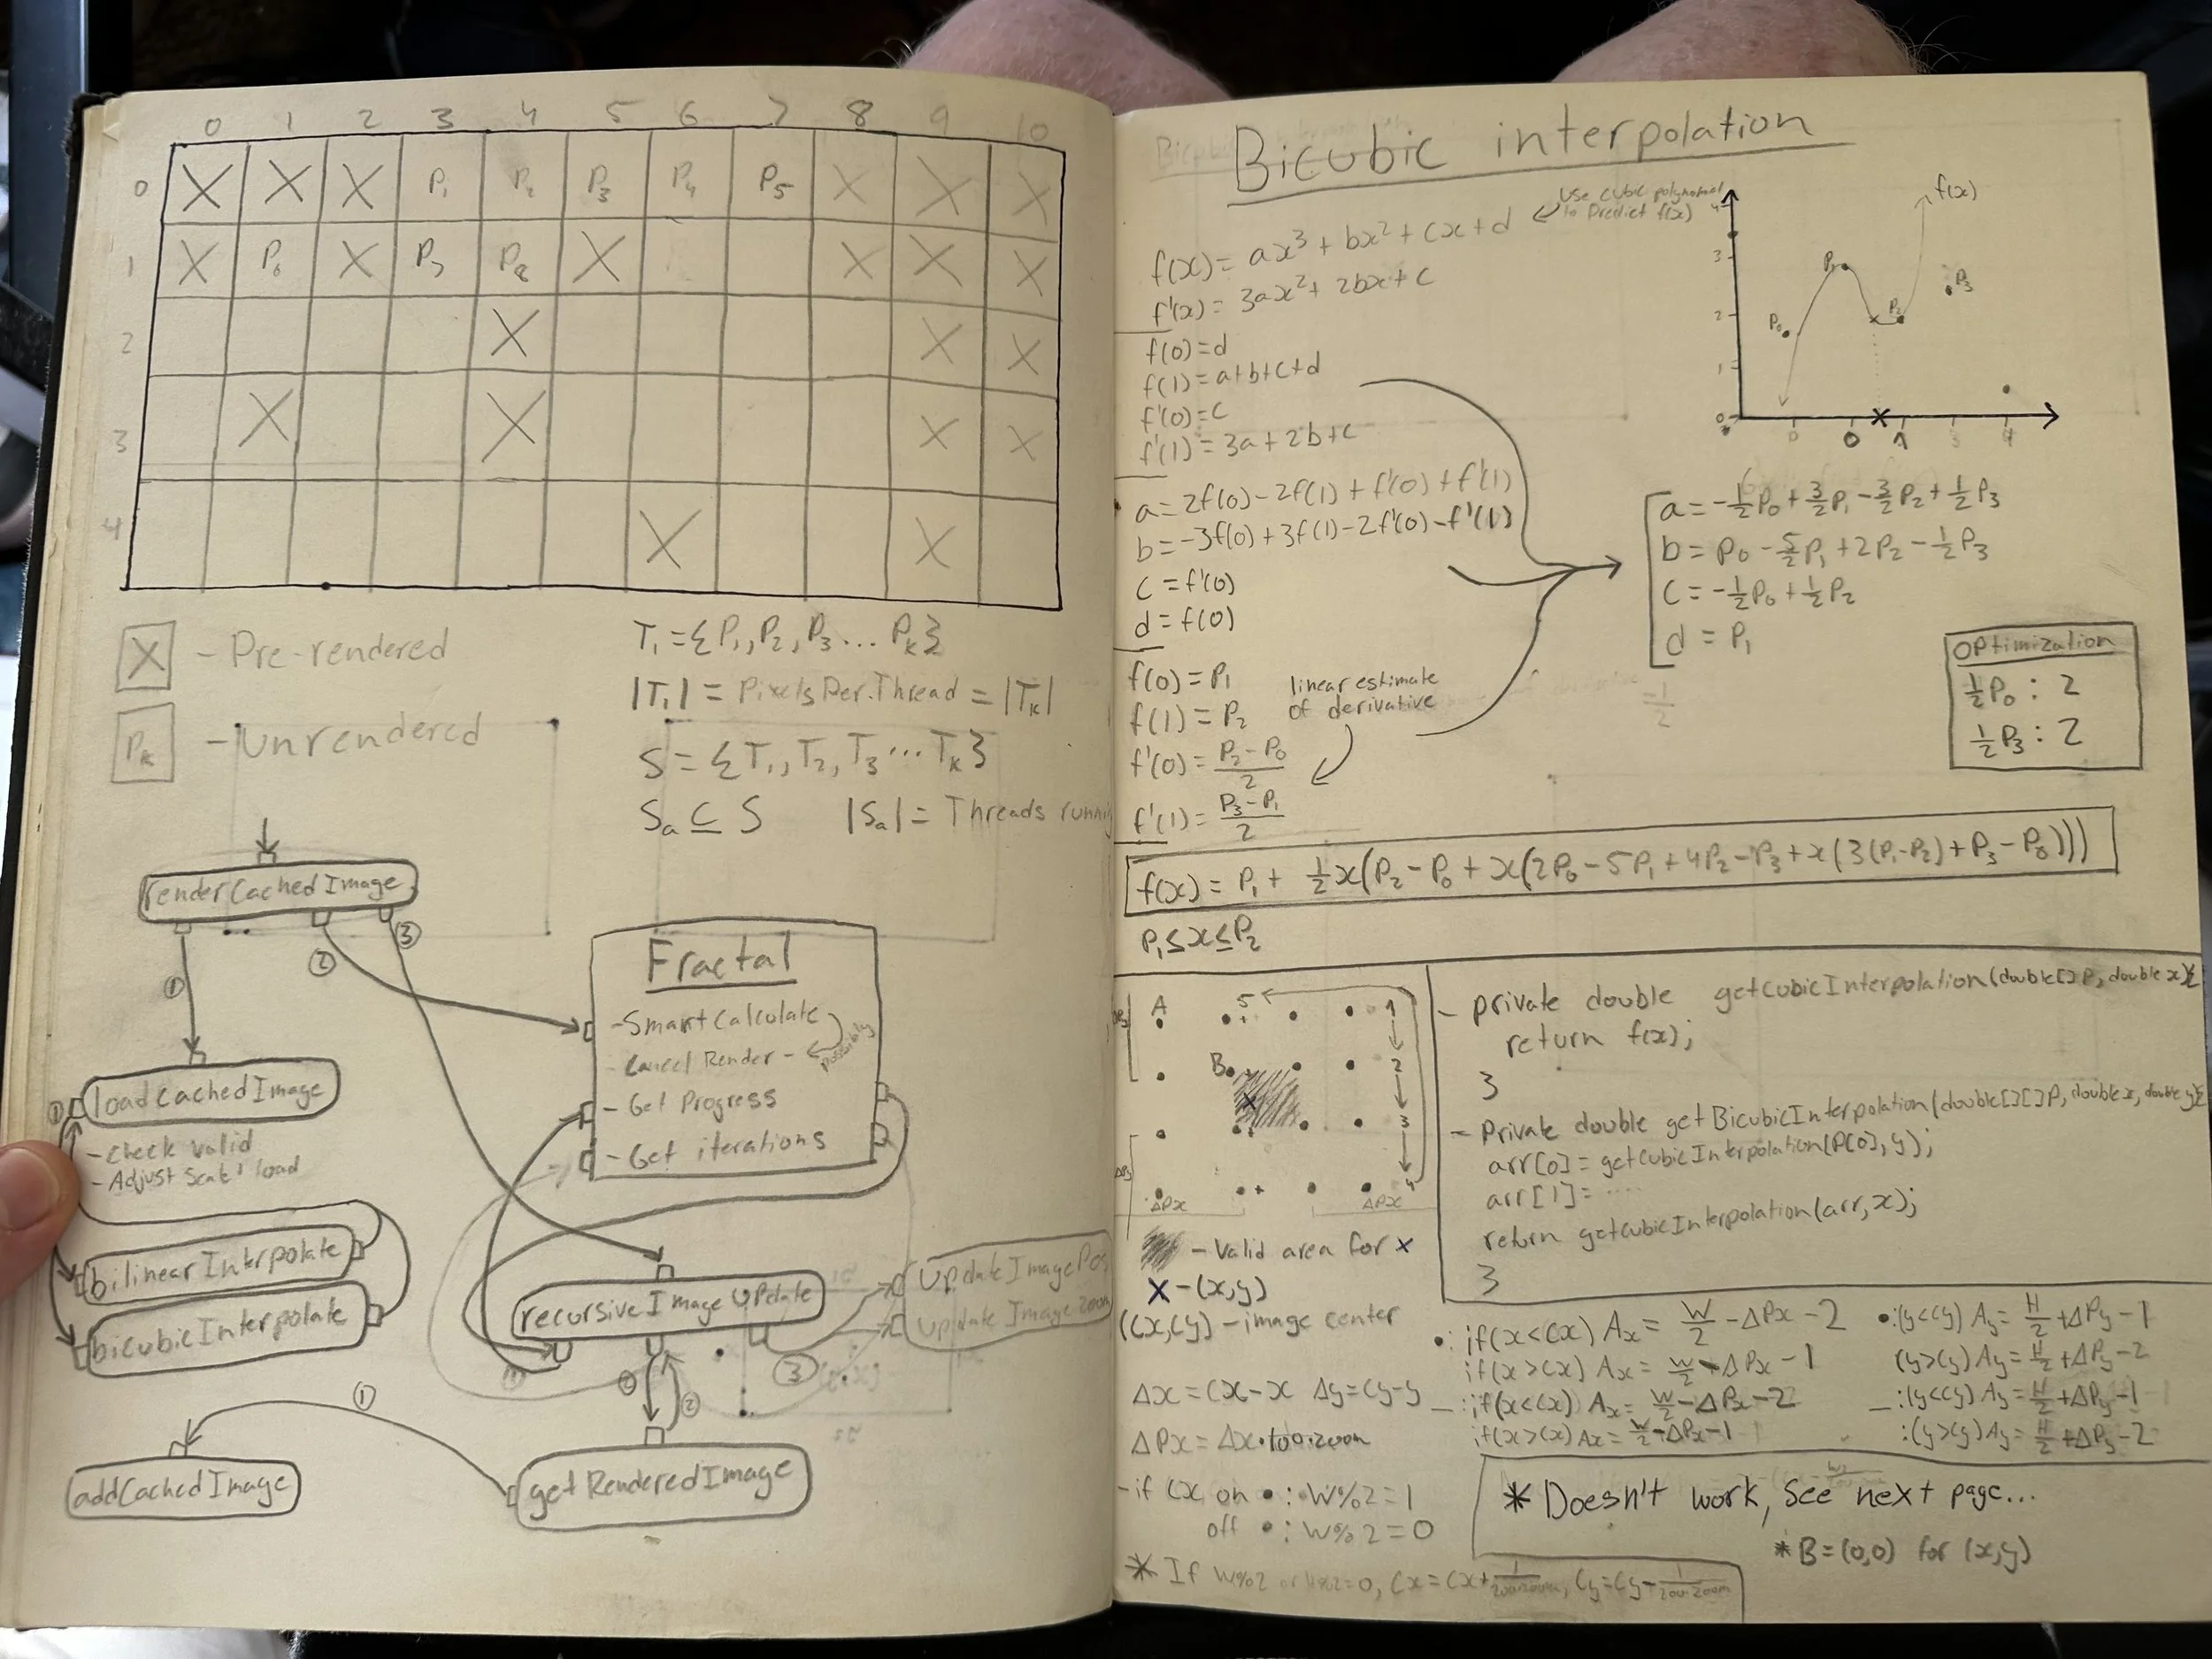 0 1 2 3 4 5 6 7 8 9 10
0 X X X P₁ P₂ P₃ P₄ P₅ X X X
1 X P₆ X P₇ P₈ X X X X
2 X X X
3 X X X X
4 X X
X - Pre-rendered
Pₖ - Unrendered
T₁ = {P₁, P₂, P₃ ... Pₖ}
|T₁| = Pixels Per Thread = |Tₖ|
S = {T₁, T₂, T₃ ... Tₖ}
Sₐ ⊆ S |Sₐ| = Threads runnin
renderCachedImage
① ② ③
Fractal
- Smart Calculate
- Cancel Render -
possibly
- Get Progress
- Get iterations
loadCachedImage
①
- Check valid
- Adjust Scale & load
bilinearInterpolate
bicubicInterpolate
recursiveImageUpdate
UpdateImagePos
Update Image Zoom
① ② ③
①
addCachedImage
getRenderedImage
Bicubic interpolation
f(x) = ax³ + bx² + cx + d
Use cubic polynomial
to Predict f(x)
f'(x) = 3ax² + 2bx + c
f(0) = d
f(1) = a+b+c+d
f'(0) = c
f'(1) = 3a + 2b + c
a = 2f(0) - 2f(1) + f'(0) + f'(1)
b = -3f(0) + 3f(1) - 2f'(0) - f'(1)
c = f'(0)
d = f(0)
f(0) = P₁
f(1) = P₂
f'(0) = (P₂ - P₀)/2
f'(1) = (P₃ - P₁)/2
linear estimate
of derivative
f(x)
4
3
2
1
0
P₀ P₁ P₂ P₃
0 1 3 4
a = -½P₀ + 3/2P₁ - 3/2P₂ + ½P₃
b = P₀ - 5/2P₁ + 2P₂ - ½P₃
c = -½P₀ + ½P₂
d = P₁
Optimization
½P₀ : 2
½P₃ : 2
f(x) = P₁ + ½x(P₂ - P₀ + x(2P₀ - 5P₁ + 4P₂ - P₃ + x(3(P₁-P₂) + P₃ - P₀)))
P₁ ≤ x ≤ P₂
A 5 1
B 2
3
4
ΔPx ΔPx
- Valid area for x
X - (x,y)
(cx,cy) - image center
Δx = cx-x Δy = cy-y
ΔPx = Δx·100·zoom
- if cx on • : W%2 = 1
off • : W%2 = 0
* If W%2 or H%2=0, Cx = Cx + 1/(200·zoom), Cy = Cy - 1/(200·zoom)
- private double getCubicInterpolation(double[] P, double x){
return f(x);
}
- Private double getBicubicInterpolation(double[][] P, double x, double y){
arr[0] = getCubicInterpolation(P[0], y);
arr[1] = ....
return getCubicInterpolation(arr, x);
}
• : if(x<cx) Ax = W/2 - ΔPx - 2 • : (y<cy) Ay = H/2 + ΔPy - 1
if(x>cx) Ax = W/2 - ΔPx - 1 (y>cy) Ay = H/2 + ΔPy - 2
_ : if(x<cx) Ax = W/2 - ΔPx - 2 _ : (y<cy) Ay = H/2 + ΔPy - 1
if(x>cx) Ax = W/2 - ΔPx - 1 : (y>cy) Ay = H/2 + ΔPy - 2
* Doesn't work, see next page...
* B = (0,0) for (x,y)